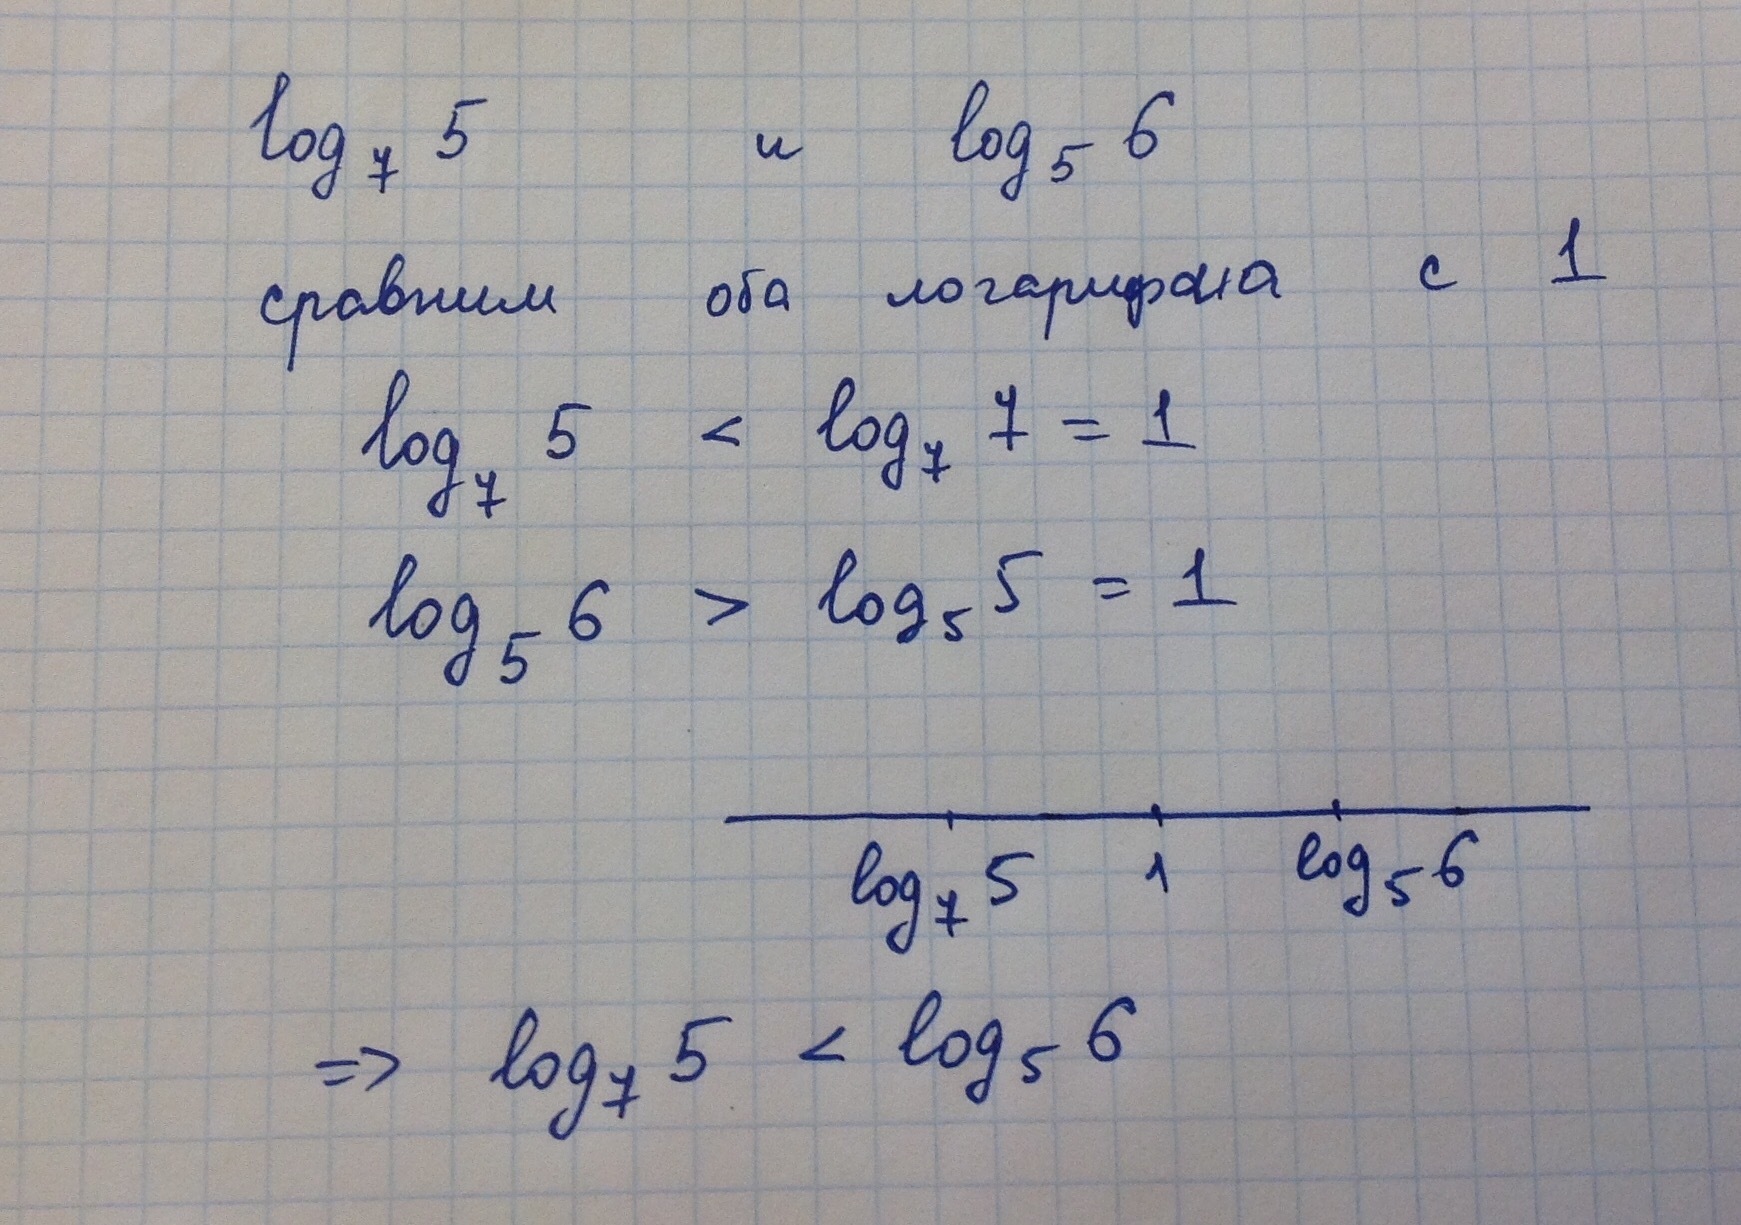 log₇ 5 и log₅ 6
сравним оба логарифма с 1
log₇ 5 < log₇ 7 = 1
log₅ 6 > log₅ 5 = 1
log₇ 5 1 log₅ 6
=> log₇ 5 < log₅ 6